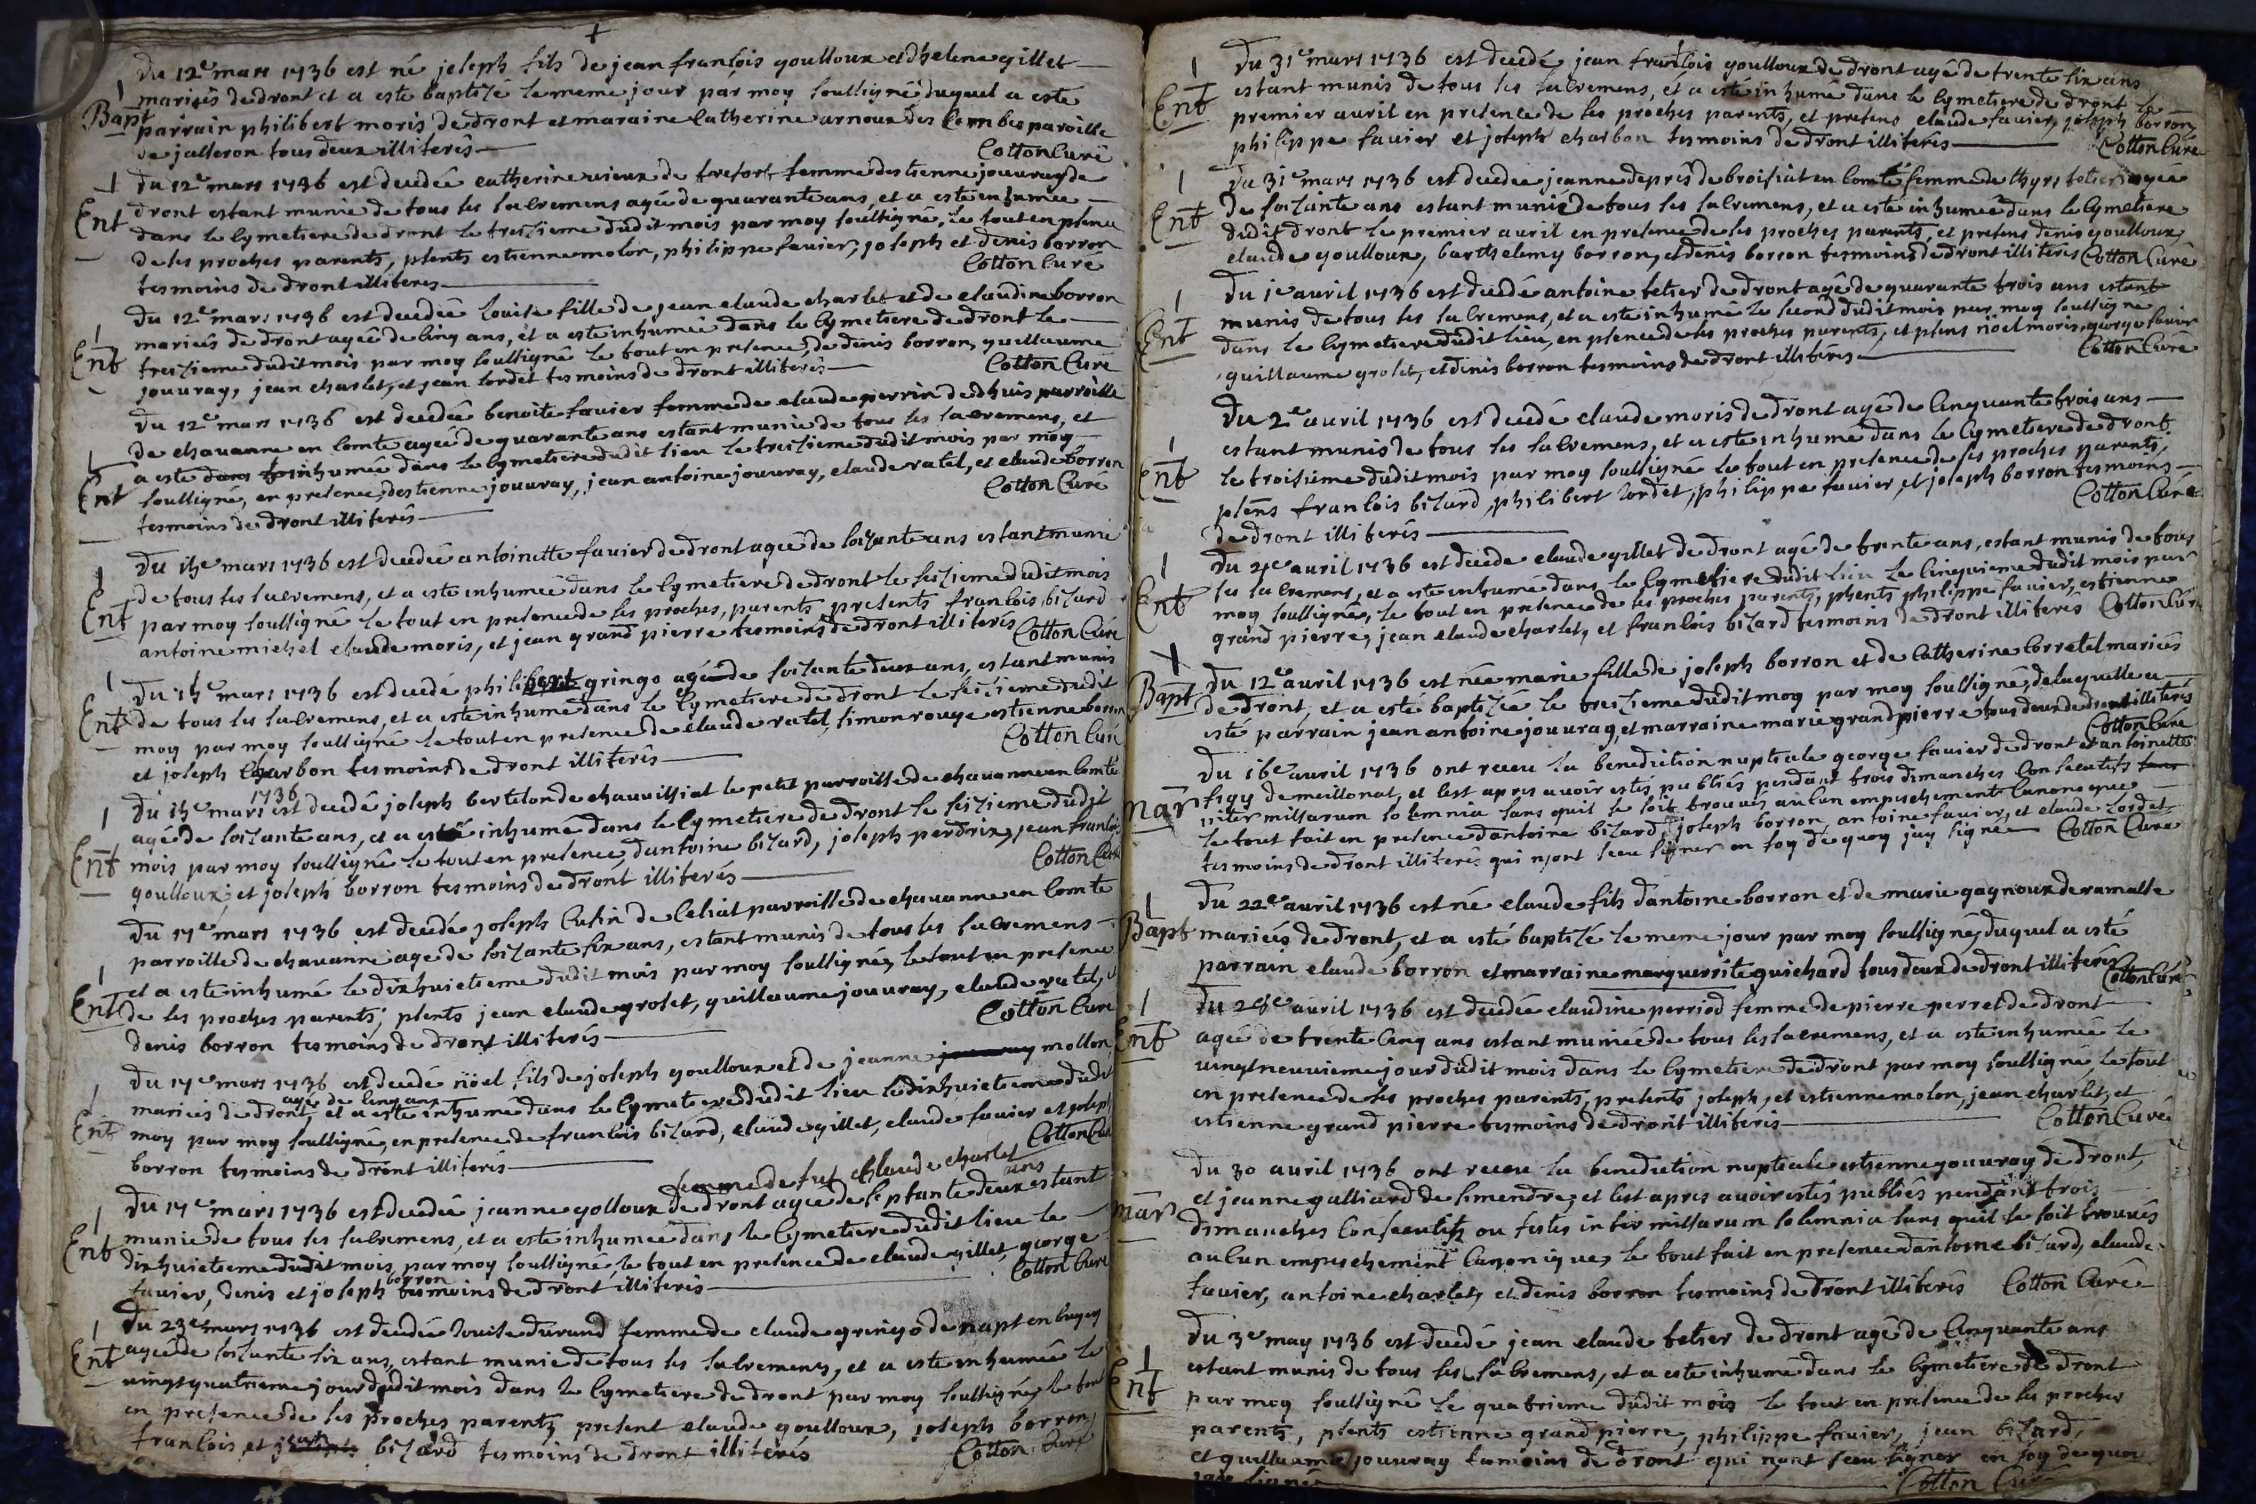 Du 12e mars 1736 est né joseph fils de jean françois goulloux et dhelene gillet
Bapt
mariés de dront et a este baptizé le meme jour par moy soussigné duquel a este
parrain philibert moris de dront et maraine catherine arnoux des Combes paroisse
de jasseron tous deux illiterés
Cotton Curé
Ent
Du 12e mars 1736 est decedée catherine vieux de tresort femme destienne jouuray de
dront estant munie de tous les sacremens agée de quarante ans, et a este inhumée
dans le cymetiere de dront le tresieme dudit mois par moy soussigné, le tout en psence
de ses proches parents, psents estienne molon, philippe fauier, joseph et denis borron
tesmoins de dront illiterés
Cotton Curé
Ent
Du 12e mars 1736 est decedée louise fille de jean claude charlet et de claudine borron
mariés de dront agée de cinq ans, et a este inhumée dans le cymetiere de dront le
tresieme dudit mois par moy soussigné le tout en presence, de denis borron, guillaume
jouuray, jean charlet, et jean lordet tesmoins de dront illiterés
Cotton Curé
Ent
Du 12e mars 1736 est decedée benoite fauier femme de claude pierrin dedhuis parroisse
de chavanne en comte agée de quarante ans estant munie de tous les sacremens, et
a este dans inhumée dans le cymetiere dudit lieu le tresieme dudit mois par moy
soussigné, en presence, destienne jouuray, jean antoine jouuray, claude ratel, et claude borron
tesmoins de dront illiterés
Cotton Curé
Ent
Du 15e mars 1736 est decedée antoinette fauier de dront agée de soizante ans estant munie
de tous les sacremens, et a este inhumée dans le cymetiere de dront le sezieme dudit mois
par moy soussigné le tout en presence de ses proches, parents presents françois bizard
antoine michel claude moris, et jean grand pierre tesmoins de dront illiterés
Cotton Curé
Ent
Du 15e mars 1736 est decedé philibert gringo agé de soizante deux ans, estant munis
de tous les sacremens, et a este inhumé dans le cymetiere de dront le sezieme dudit
moy par moy soussigné le tout en presence de claude ratel, simon rouge estienne borron
et joseph charbon tesmoins de dront illiterés
Cotton Curé
Ent
1736
Du 15e mars est decedé joseph bertelon de chauissiat le petit parroisse de chauanne en Comté
agé de soizante ans, et a esté inhumé dans le cymetiere de dront le sezieme dudit
mois par moy soussigné le tout en presence dantoine bizard, joseph perdrix, jean françois
goulloux, et joseph borron tesmoins de dront illiterés
Cotton Curé
Ent
Du 17e mars 1736 est decedé joseph Cusin de Celiat parroisse de chauanne en Comte
parroisse de chauanne age de soizante six ans, estant munis de tous les sacremens
et a este inhumé le dixhuictieme dudit mois par moy soussigné, le tout en presence
de ses proches parents, psents jean claude grolet, guillaume jouuray, claude ratel, et
denis borron tesmoins de dront illiterés
Cotton Curé
Ent
Du 17e mars 1736 est decedé noël fils de joseph goulloux et de jeanne jouuray mollon
agé de cinq ans
mariés de dront, et a este inhumé dans le cymetiere dudit lieu le dixhuictieme dudit
moy par moy soussigné, en presence de françois bizard, claude gillet, claude fauier et joseph
borron tesmoins de dront illiterés
Cotton Curé
Ent
femme de fut Claude charlet
Du 17e mars 1736 est decedée jeanne golloux de dront agée de septante deux ans estant
munie de tous les sacremens, et a este inhumée dans le cymetiere dudit lieu le
dixhuictieme dudit mois, par moy soussigné, le tout en presence de claude gillet, george
fauier, denis et joseph borron tesmoins de dront illiterés
Cotton Curé
Ent
Du 23e mars 1736 est decedée louise durand femme de claude gringo de napt en bugey
agée de soizante six ans, estant munie de tous les sacremens, et a este inhumée le
uingtquatrieme jour dudit mois dans le cymetiere de dront par moy soussigné, le tout
en presence de ses proches parents, present claude goulloux, joseph borron,
françois et jean bizard tesmoins de dront illiterés
Cotton Curé
Ent
Du 31e mars 1736 est decedé jean françois goulloux de dront agé de trente six ans
estant munis de tous les sacremens, et a este inhumé dans le cymetiere de dront le
premier auril en presence de ses proches parents, et presens claude fauier, joseph borron,
philippe fauier et joseph charbon tesmoins de dront illiterés
Cotton Curé
Ent
Du 31e mars 1736 est decedée jeanne deprés de broisiat en comté femme de thyrs tetier agée
de soizante ans estant munie de tous les sacremens, et a este inhumée dans le cymetiere
dudit dront le premier auril en presence de ses proches parents, et presens denis goulloux,
claude goulloux, barthelemy borron, et denis borron tesmoins de dront illiterés Cotton Curé
Ent
Du 1e auril 1736 est decedé antoine tetier de dront agé de quarante trois ans estant
munis de tous les sacremens, et a este inhumé le second dudit mois par moy soussigné
dans le cymetiere dudit lieu, en psence de ses proches parents, et psens noel moris, george fauier
guillaume grolet, et denis borron tesmoins de dront illiterés
Cotton Curé
Ent
Du 2e auril 1736 est decedé claude moris de dront agé de cinquante trois ans
estant munis de tous les sacremens, et a este inhumé dans le cymetiere de dront
le troisieme dudit mois par moy soussigné le tout en presence de ses proches parents,
psens françois bizard, philibert lordet, philippe fauier, et joseph borron tesmoins
de dront illiterés
Cotton Curé
Ent
Du 4e auril 1736 est decedé claude gillet de dront agé de trente ans, estant munis de tous
les sacremens, et a este inhumé dans le cymetiere dudit lieu le cinquieme dudit mois par
moy soussigné, le tout en presence de ses proches parents, psents philippe fauier, estienne
grand pierre, jean claude charlet, et françois bizard tesmoins de dront illiterés Cotton Curé
Bapt
Du 12e auril 1736 est née marie fille de joseph borron et de catherine Corretel mariés
de dront, et a esté baptizée le tresieme dudit moy par moy soussigné, delaquelle a
esté parrain jean antoine jouuray, et marraine marie grandpierre tous deux de dront illiterés
Cotton Curé
Mar
Du 16e auril 1736 ont receu la benediction nuptiale george fauier de dront et antoinette
figy de meillonat, et cest apres auoir estés publiés pendant trois dimanches consecutifs
inter missarum solemnia sans quil se soit trouvés aulcun empeschement Canonique
le tout fait en presence dantoine bizard, joseph borron, antoine fauier, et claude lordet
tesmoins de dront illiterés qui nont sceu signer en foy de quoy jay signé Cotton Curé
Bapt
Du 22e auril 1736 est né claude fils dantoine borron et de marie gagnoux deramasse
mariés de dront, et a esté baptizé le meme jour par moy soussigné, duquel a esté
parrain claude borron et marraine marguerite guichard tous deux de dront illiterés
Cotton Curé
Ent
Du 28e auril 1736 est decedée claudine perriod femme de pierre perret de dront
agée de trente cinq ans estant muniée de tous les sacremens, et a este inhumée le
uingtneuuieme jour dudit mois dans le cymetiere de dront par moy soussigné, le tout
en presence de ses proches parents, presents joseph, et estienne molon, jean charlet, et
estienne grand pierre tesmoins de dront illiterés
Cotton Curé
Mar
Du 30 auril 1736 ont receu la benediction nuptiale estienne jouuray de dront,
et jeanne galliard de simendre, et cest apres auoir estés publiés pendant trois
dimanches Consecutifs ou festes inter missarum solemnia sans quil se soit trouués
aulcun empeschement Canonique, le tout fait en presence dantoine bizard, claude
fauier, antoine charlet, et denis borron tesmoins de dront illiterés Cotton Curé
Ent
Du 3e may 1736 est decedé jean claude tetier de dront agé de cinquante ans
estant munis de tous les sacremens, et a este inhumé dans le cymetiere de dront
par moy soussigné le quatrieme dudit mois le tout en presence de ses proches
parents, psents estienne grand pierre, philippe fauier, jean bizard,
et guillaume jouuray tesmoins de dront qui nont sceu signer en foy dequoi
jay signé
Cotton Curé